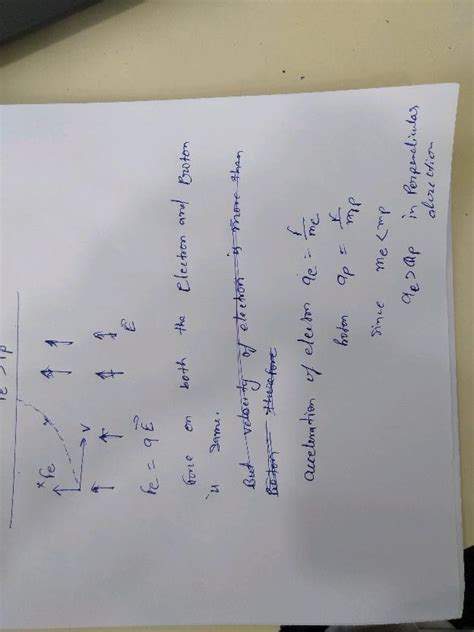 Fe
V
E
Fe = qE
Force on both the Electron and Proton
is same.
But velocity of electron is more than
Proton therefore
acceleration of electron ae = F/me
Proton ap = F/mp
since me < mp
ae > ap in Perpendicular
direction